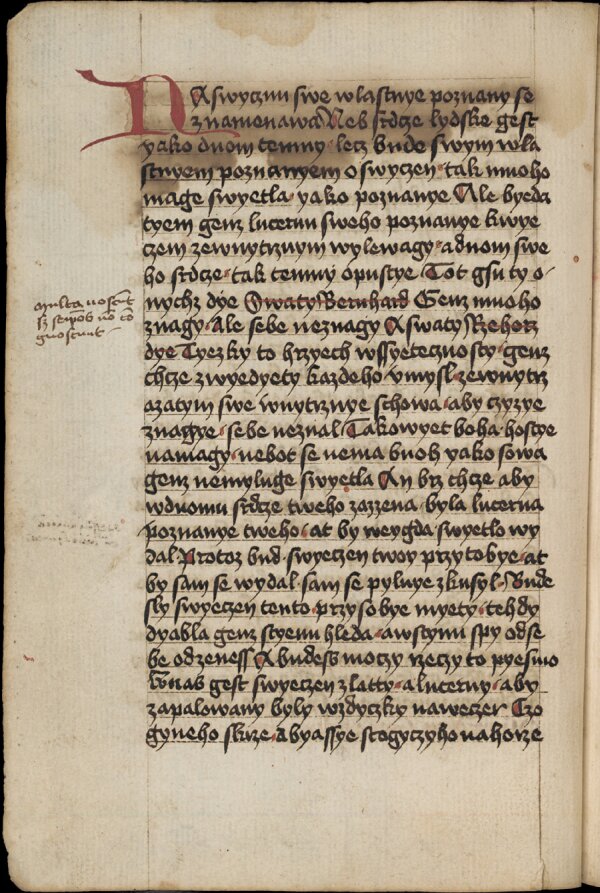 NA swycznu swe wlastnye poznany se
znamenawa Neb srdcze lydske gest
yako duom temny lecz bude swym wla
stnyem poznanyem oswyczen tak mnoho
mage swyetla yako poznanye Ale byeda
tyem genz lucernu sweho poznanye kwye
czem zewnytrznym wylewagy adnom swe
ho srdcze tak temny opustye Tot gsu ty o
nychz dye Swaty Bernhard Genz mnoho
znagy Ale sebe neznagy A swaty Rzehorz
dye Tyezky to hrzyech wssyetecznosty genz
chcze zwyedyety kazdeho vmysl zewnytrz
azatym swe wnytrznye schowa aby czyzye
znagye sebe neznal Takowyet boha hostye
namagy nebot se nema buoh yako sowa
genz nemyluge swyetla An brz chcze aby
wduomu srdcze tweho zazzena byla lucerna
poznanye tweho at by weygda swyetlo wy
dal Protoz bud swyeczen twoy przytobye at
by sam se wydal sam se pylnye zkusyl Bude
sly swyeczen tento przysobye myety tehdy
dyabla genz styenu hleda awstymi spy odse
be odzeness A budess moczy rzeczy to pyesmo
Vnas gest swyeczen zlatty alucerny aby
zapalowany byly wzdyczky naweczer Czo
gyneho skrze Abyassye stogyczyho nahorze
multa noscunt
gnoscunt